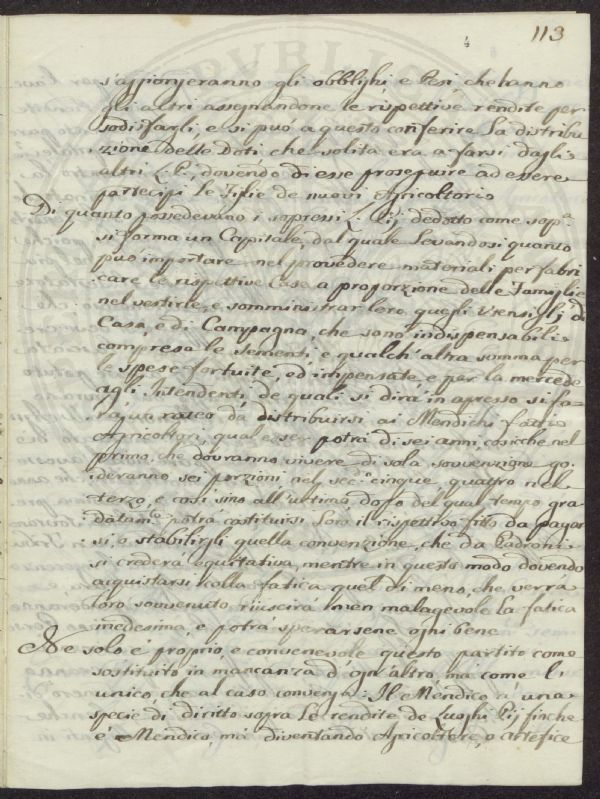 113
s'aggiongeranno gli obblighi, e Pesi, che hanno
gli altri assegnandone le rispettive rendite per
sodisfargli, e si può a questo conferire la distribu
zione delle Doti, che solita era a farsi dagli
altri L. P., dovendo di esse proseguire ad essere
partecipi le Figlie de nuovi Agricoltori
Di quanto possedevano i sopressi L. Pij dedotto come sop.a
si forma un Capitale, dal quale Levandosi quanto
può importare nel provedere materiali per fabri
care le rispettive Case a proporzione delle Famiglie
nel vestirle, e somministrar loro quegli Utensiglj di
Casa, e di Campagna, che sono indispensabili
comprese le sementi, e qualch'altra somma per
le spese fortuite, ed impensate, e per la mercede
agli Intendenti, de quali si dirà in apresso si fa
rà un da distribuirsi ai Mendichi fatti
Agricoltori, qual esser potrà di sei anni, cosicche nel
primo, che dovranno vivere di sola sovvenzione go
deranno sei porzioni, nel sec.do cinque, quattro nel
terzo, e così sino all'ultimo, dopo del qual tempo gra
datam.te potrà costituirsi loro il rispettivo fitto da pagar
si, o stabilirgli quella convenzione, che da Padroni
si crederà equitativa, mentre in questo modo dovendo
acquistarsi colla fatica quel di meno, che verrà
loro sovvenuto riuscirà men malagevole la fatica
medesima, e potrà sperarsene ogni bene
Ne solo è proprio, e convenevole questo partito come
sostituito in mancanza d'ogn'altro, ma come l'
unico, che al caso convenga: Il Mendico à una
specie di diritto sopra le rendite de Luoghi Pij finche
è Mendico, ma diventando Agricoltore, o Artefice